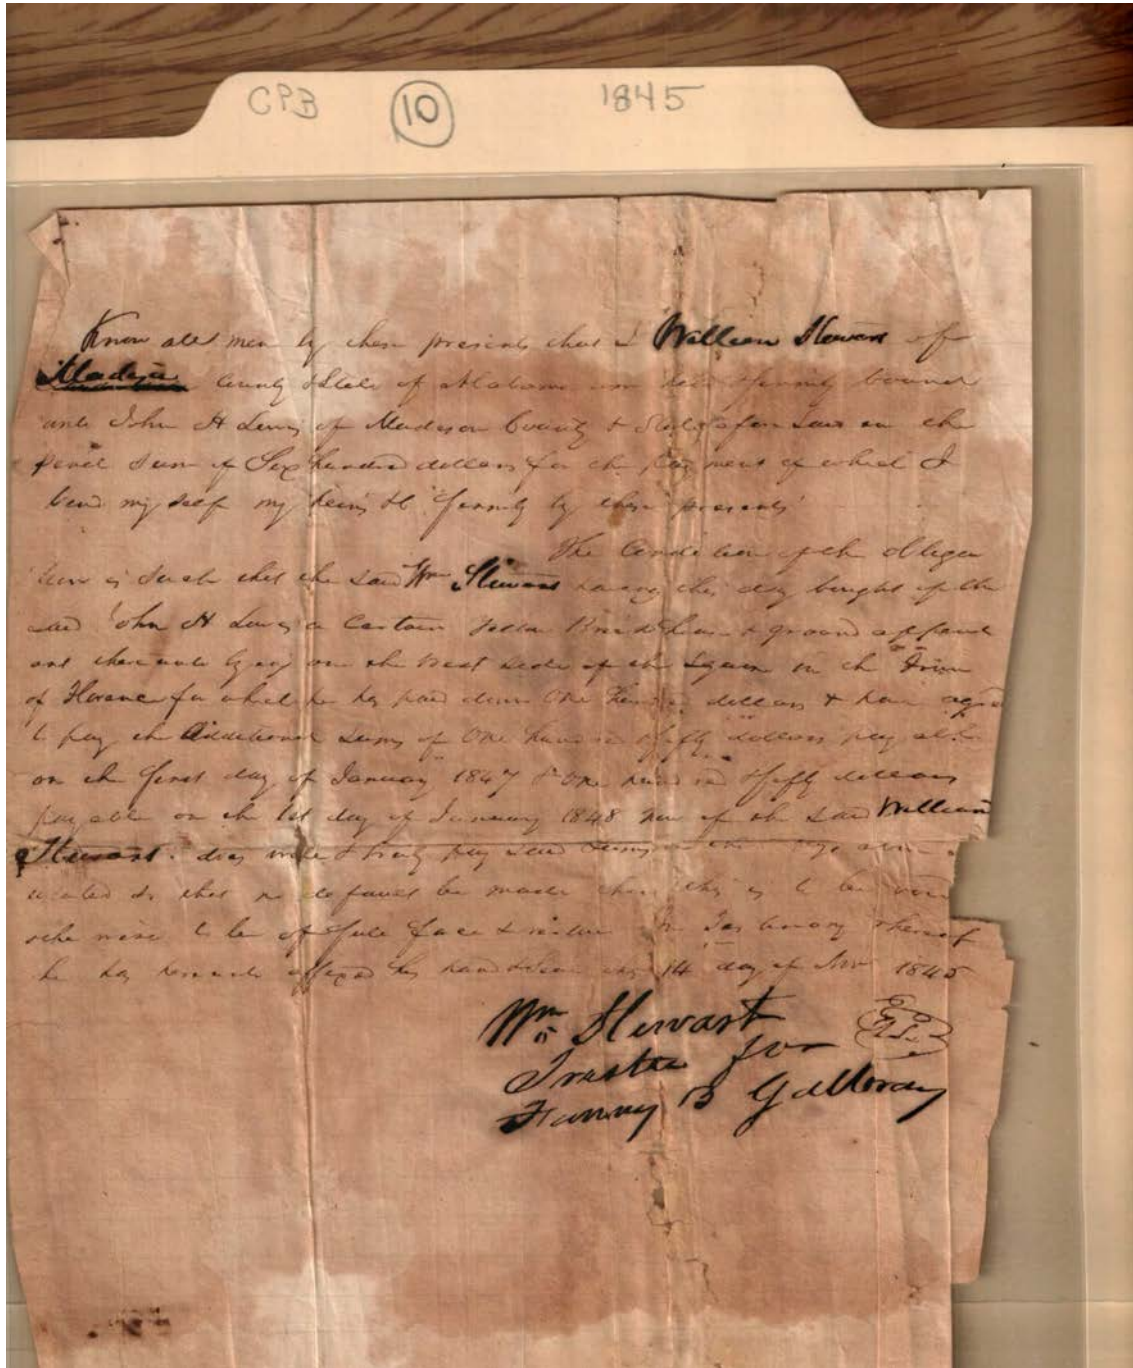 CPB 10 1845
Know all men by these presents that I William Stewart of
Madison County & State of Alabama am held & firmly bound
unto John H Lewis of Madison County & State aforesaid in the
penal Sum of Six hundred dollars for the payment of which I
bind my self my heirs &c firmly by these presents
The Condition of the Obliga
tion is Such that the Said Wm Stewart having this day bought of the
said John H Lewis a Certain Brick House & ground
and thereunto lying on the side of the Square in the Town
of Florence for which he has paid down One hundred dollars & has agreed
to pay the Additional Sums of One hundred & fifty dollars payable
on the first day of January 1847 & One hundred & fifty dollars
payable on the 1st day of January 1848 Now if the Said William
Stewart does well & truly pay said Sums
so that no default be made then this is to be void
otherwise to be of full force & virtue In Testimony whereof
he has hereunto affixed his hand & Seal this 14 day of Nov 1845
Wm Stewart
Trustee for
Fanny B Galloway